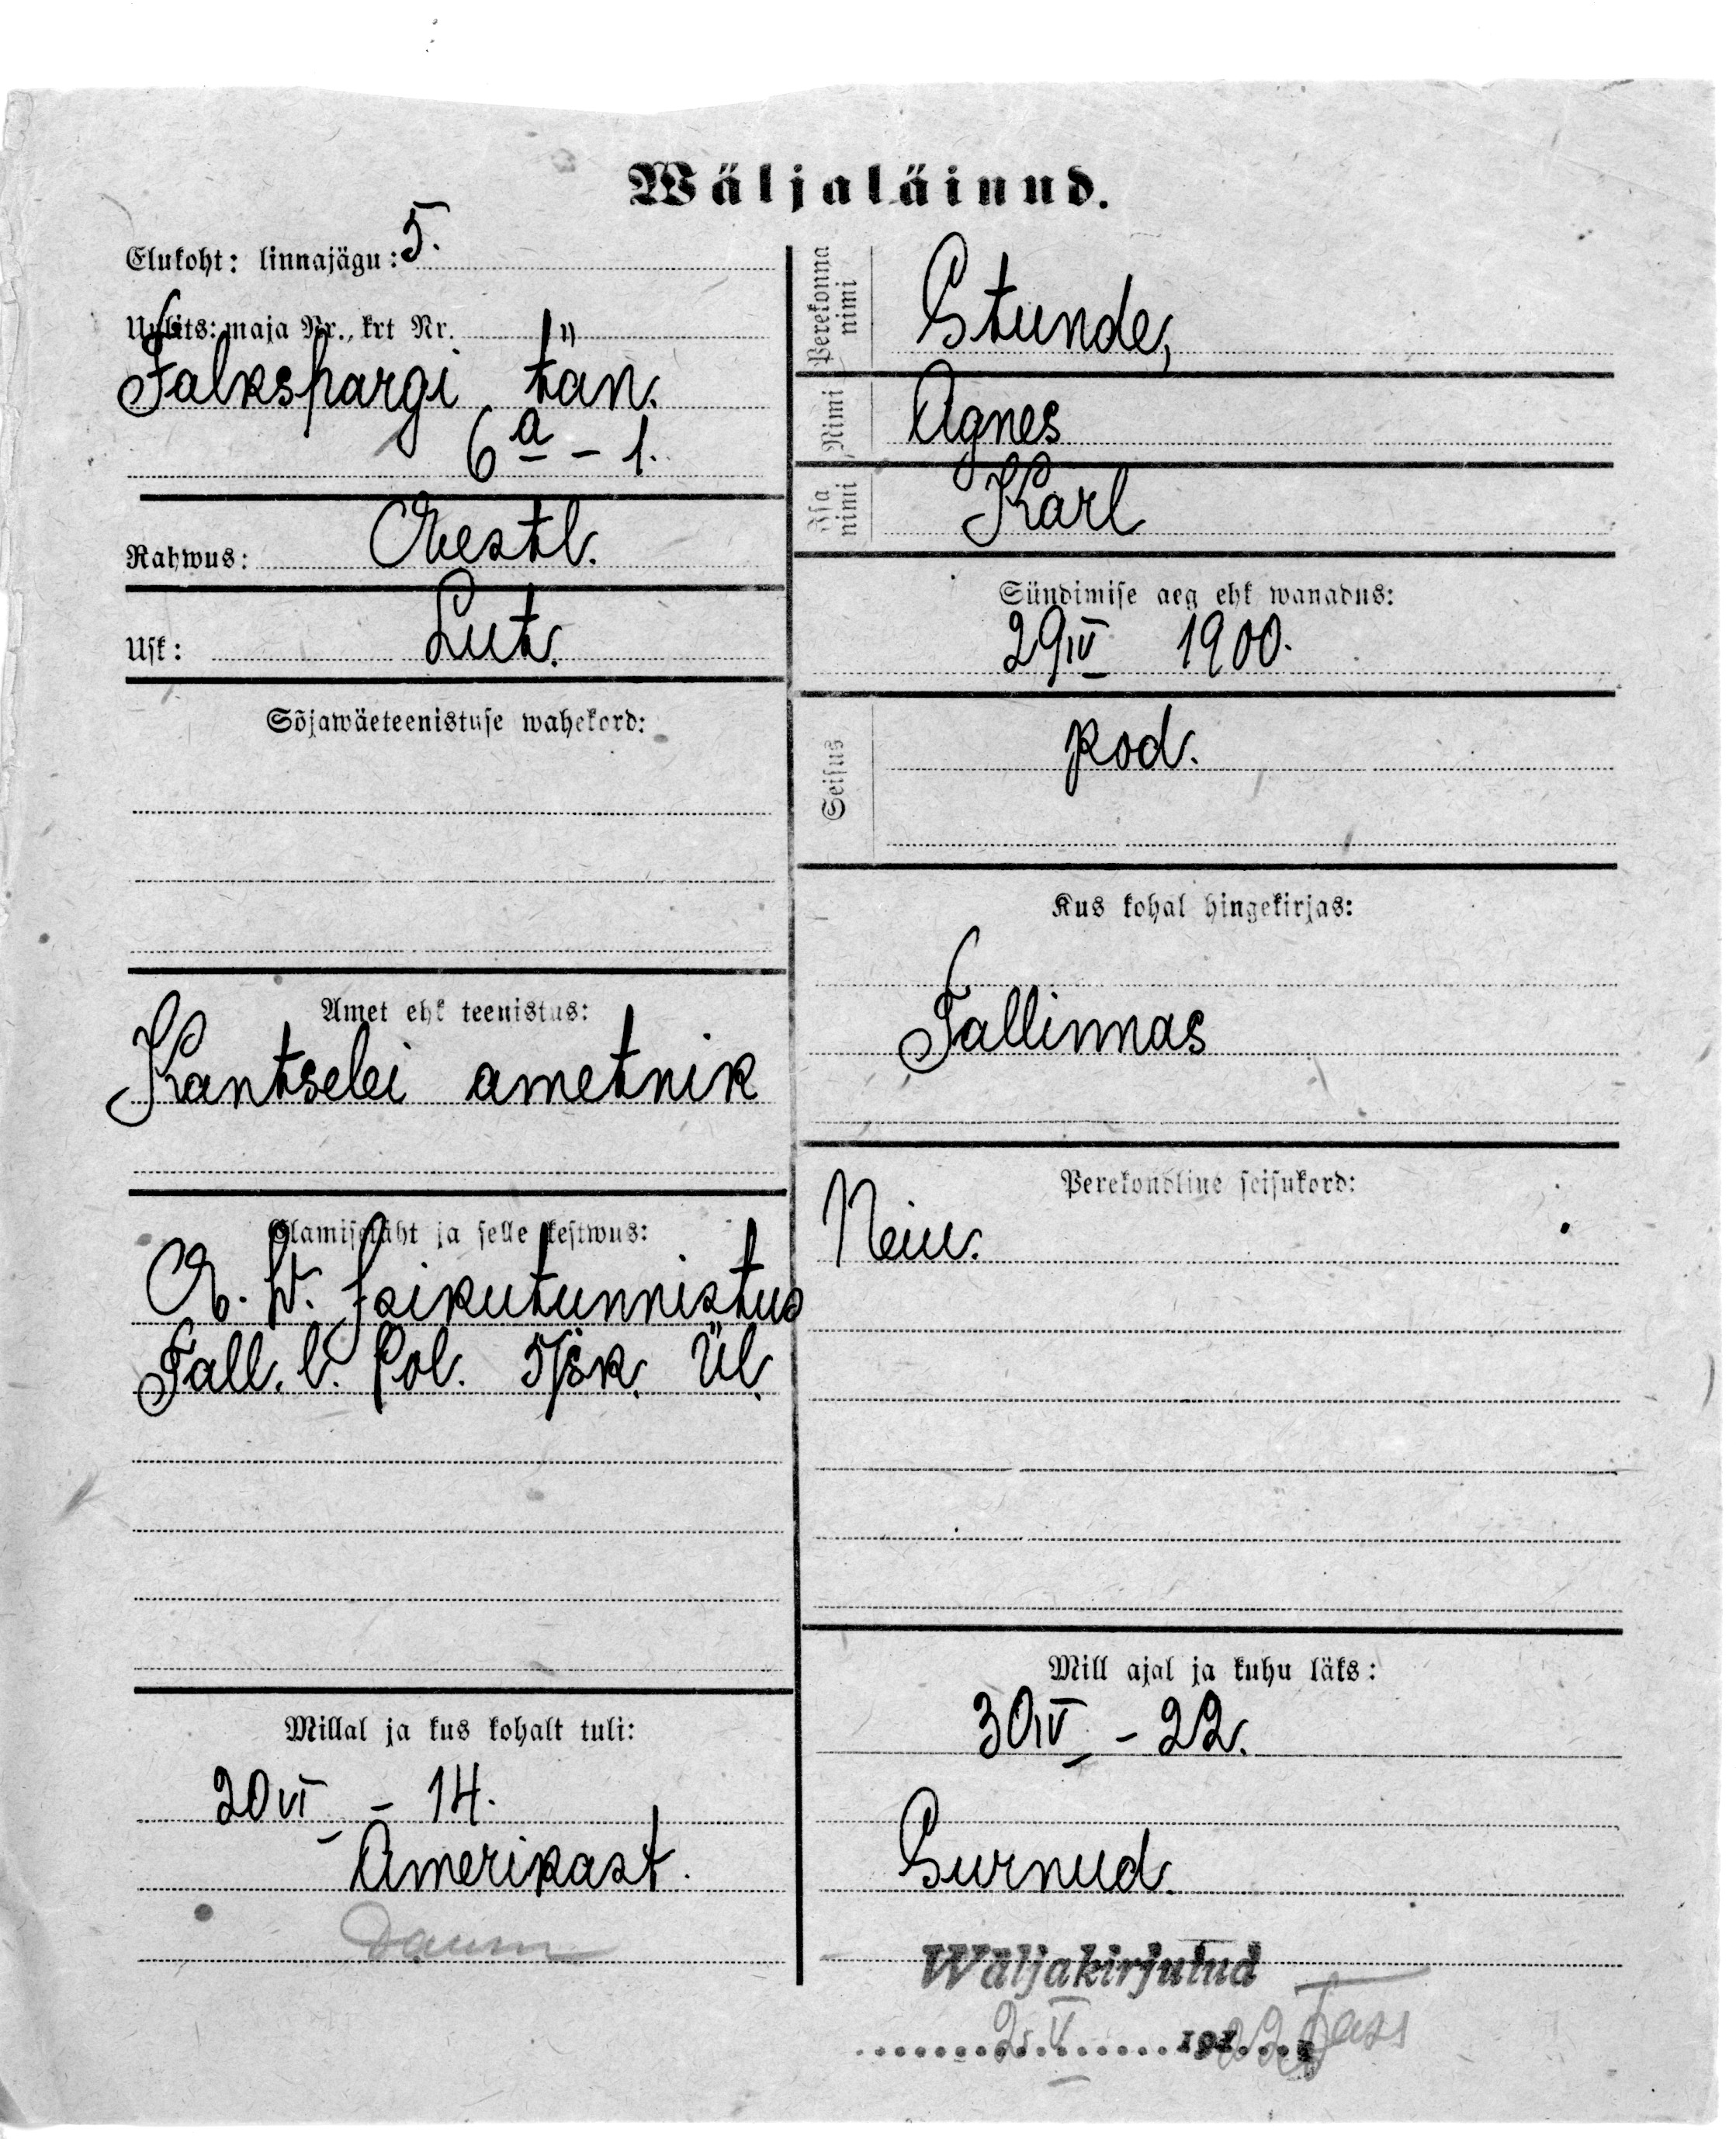 Wäljaläinud.
Elukoht: linnajägu: 5.
Uulits: maja Nr., krt Nr.
Falkspargi tän.
6a - 1.
Rahwus: Eestl.
Usk: Lut.
Sõjawäeteenistuse wahekord:
Amet ehk teenistus:
Kantselei ametnik
Elamisetäht ja selle kestwus:
E. W. Isikutunnistus
Tall. l. Pol. 5 jsk. Ül.
Millal ja kus kohalt tuli:
20 VI - 14.
Amerikast.
Perekonna nimi Stunde,
Nimi Agnes
Isa nimi Karl
Sündimise aeg ehk wanadus:
29 IV 1900.
Seisus kod.
Kus kohal hingekirjas:
Tallinnas
Perekondline seisukord:
Neiu.
Mill ajal ja kuhu läks:
30 IV - 22.
Surnud.
Wäljakirjutud
2. V 192 22